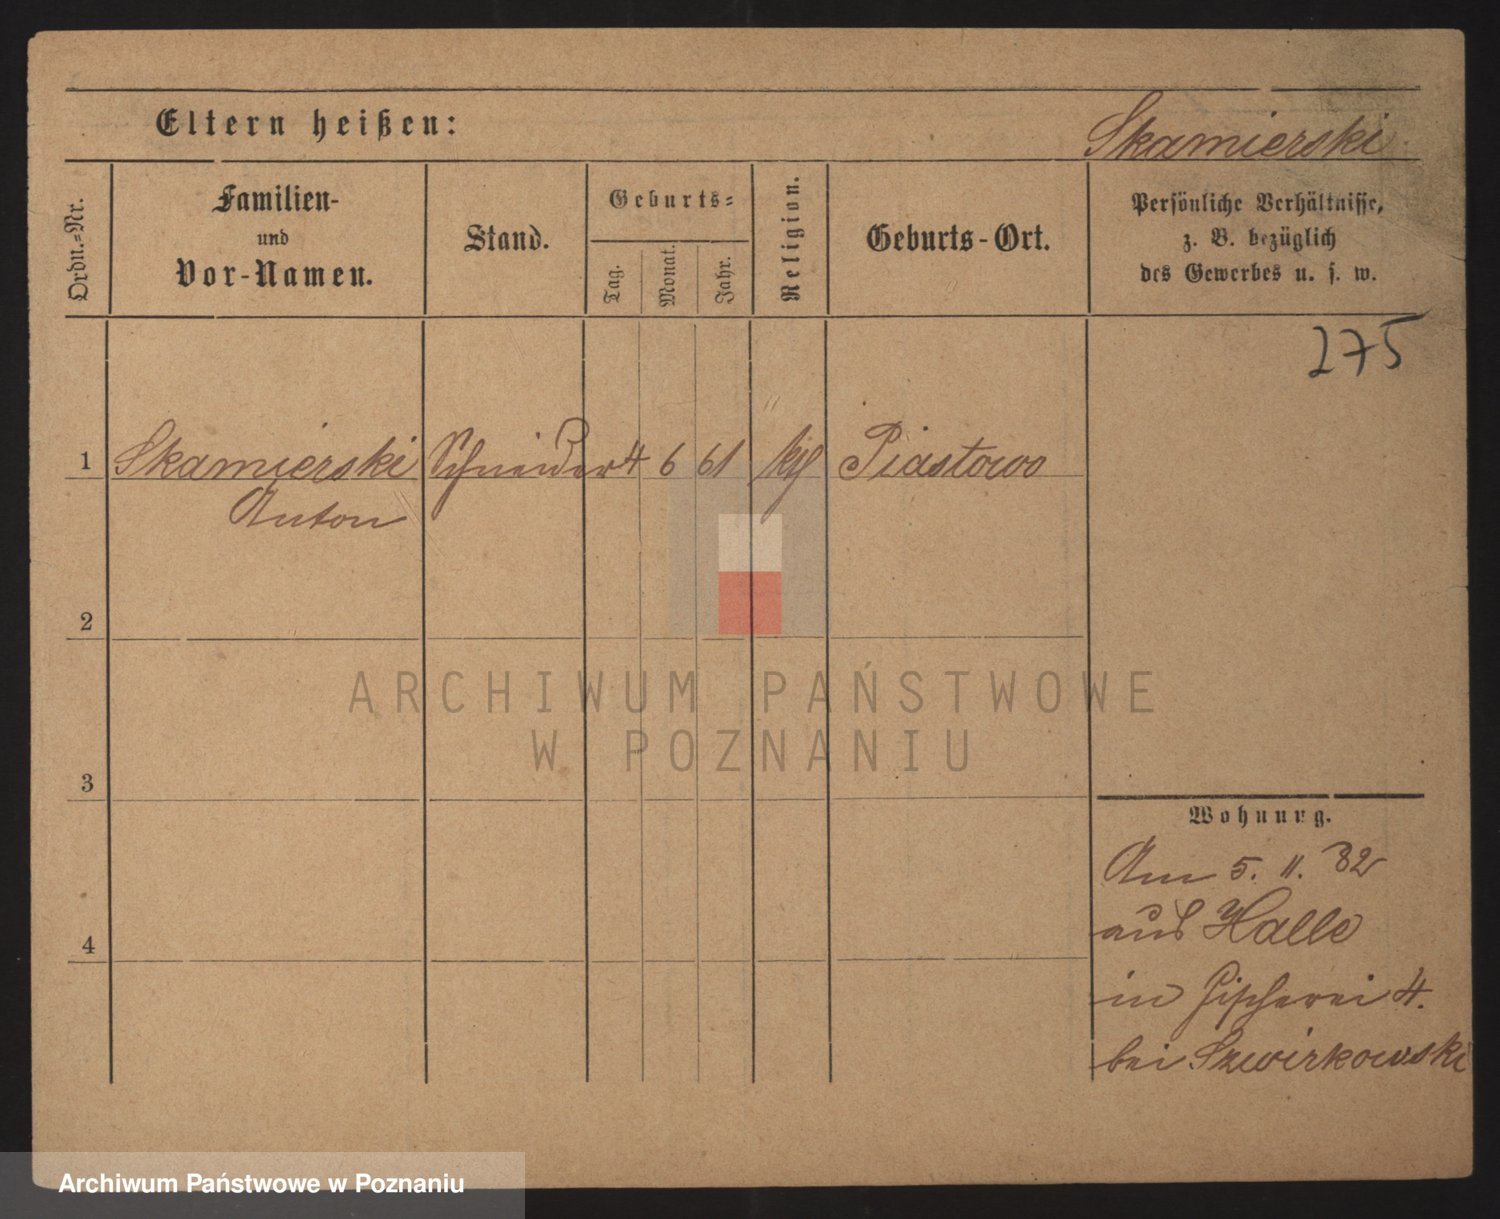 Eltern heißen:
Skamierski
Ordn.-Nr.
Familien-
und
Vor-Namen.
Stand.
Geburts-
Tag.
Monat.
Jahr.
Religion.
Geburts-Ort.
Persönliche Verhältnisse,
z. B. bezüglich
des Gewerbes u. s. w.
275
1 Skamierski Schneider 4 6 61 kth Piastowo
Anton
2
ARCHIWUM PAŃSTWOWE
W POZNANIU
3
Wohnung.
Am 5. 11. 82
aus Halle
4
in Fischerei 4.
bei Szwirkowski
Archiwum Państwowe w Poznaniu